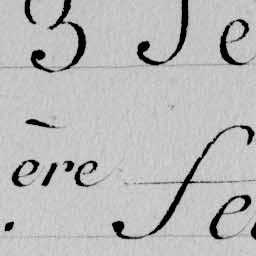 3 Se
ère fe